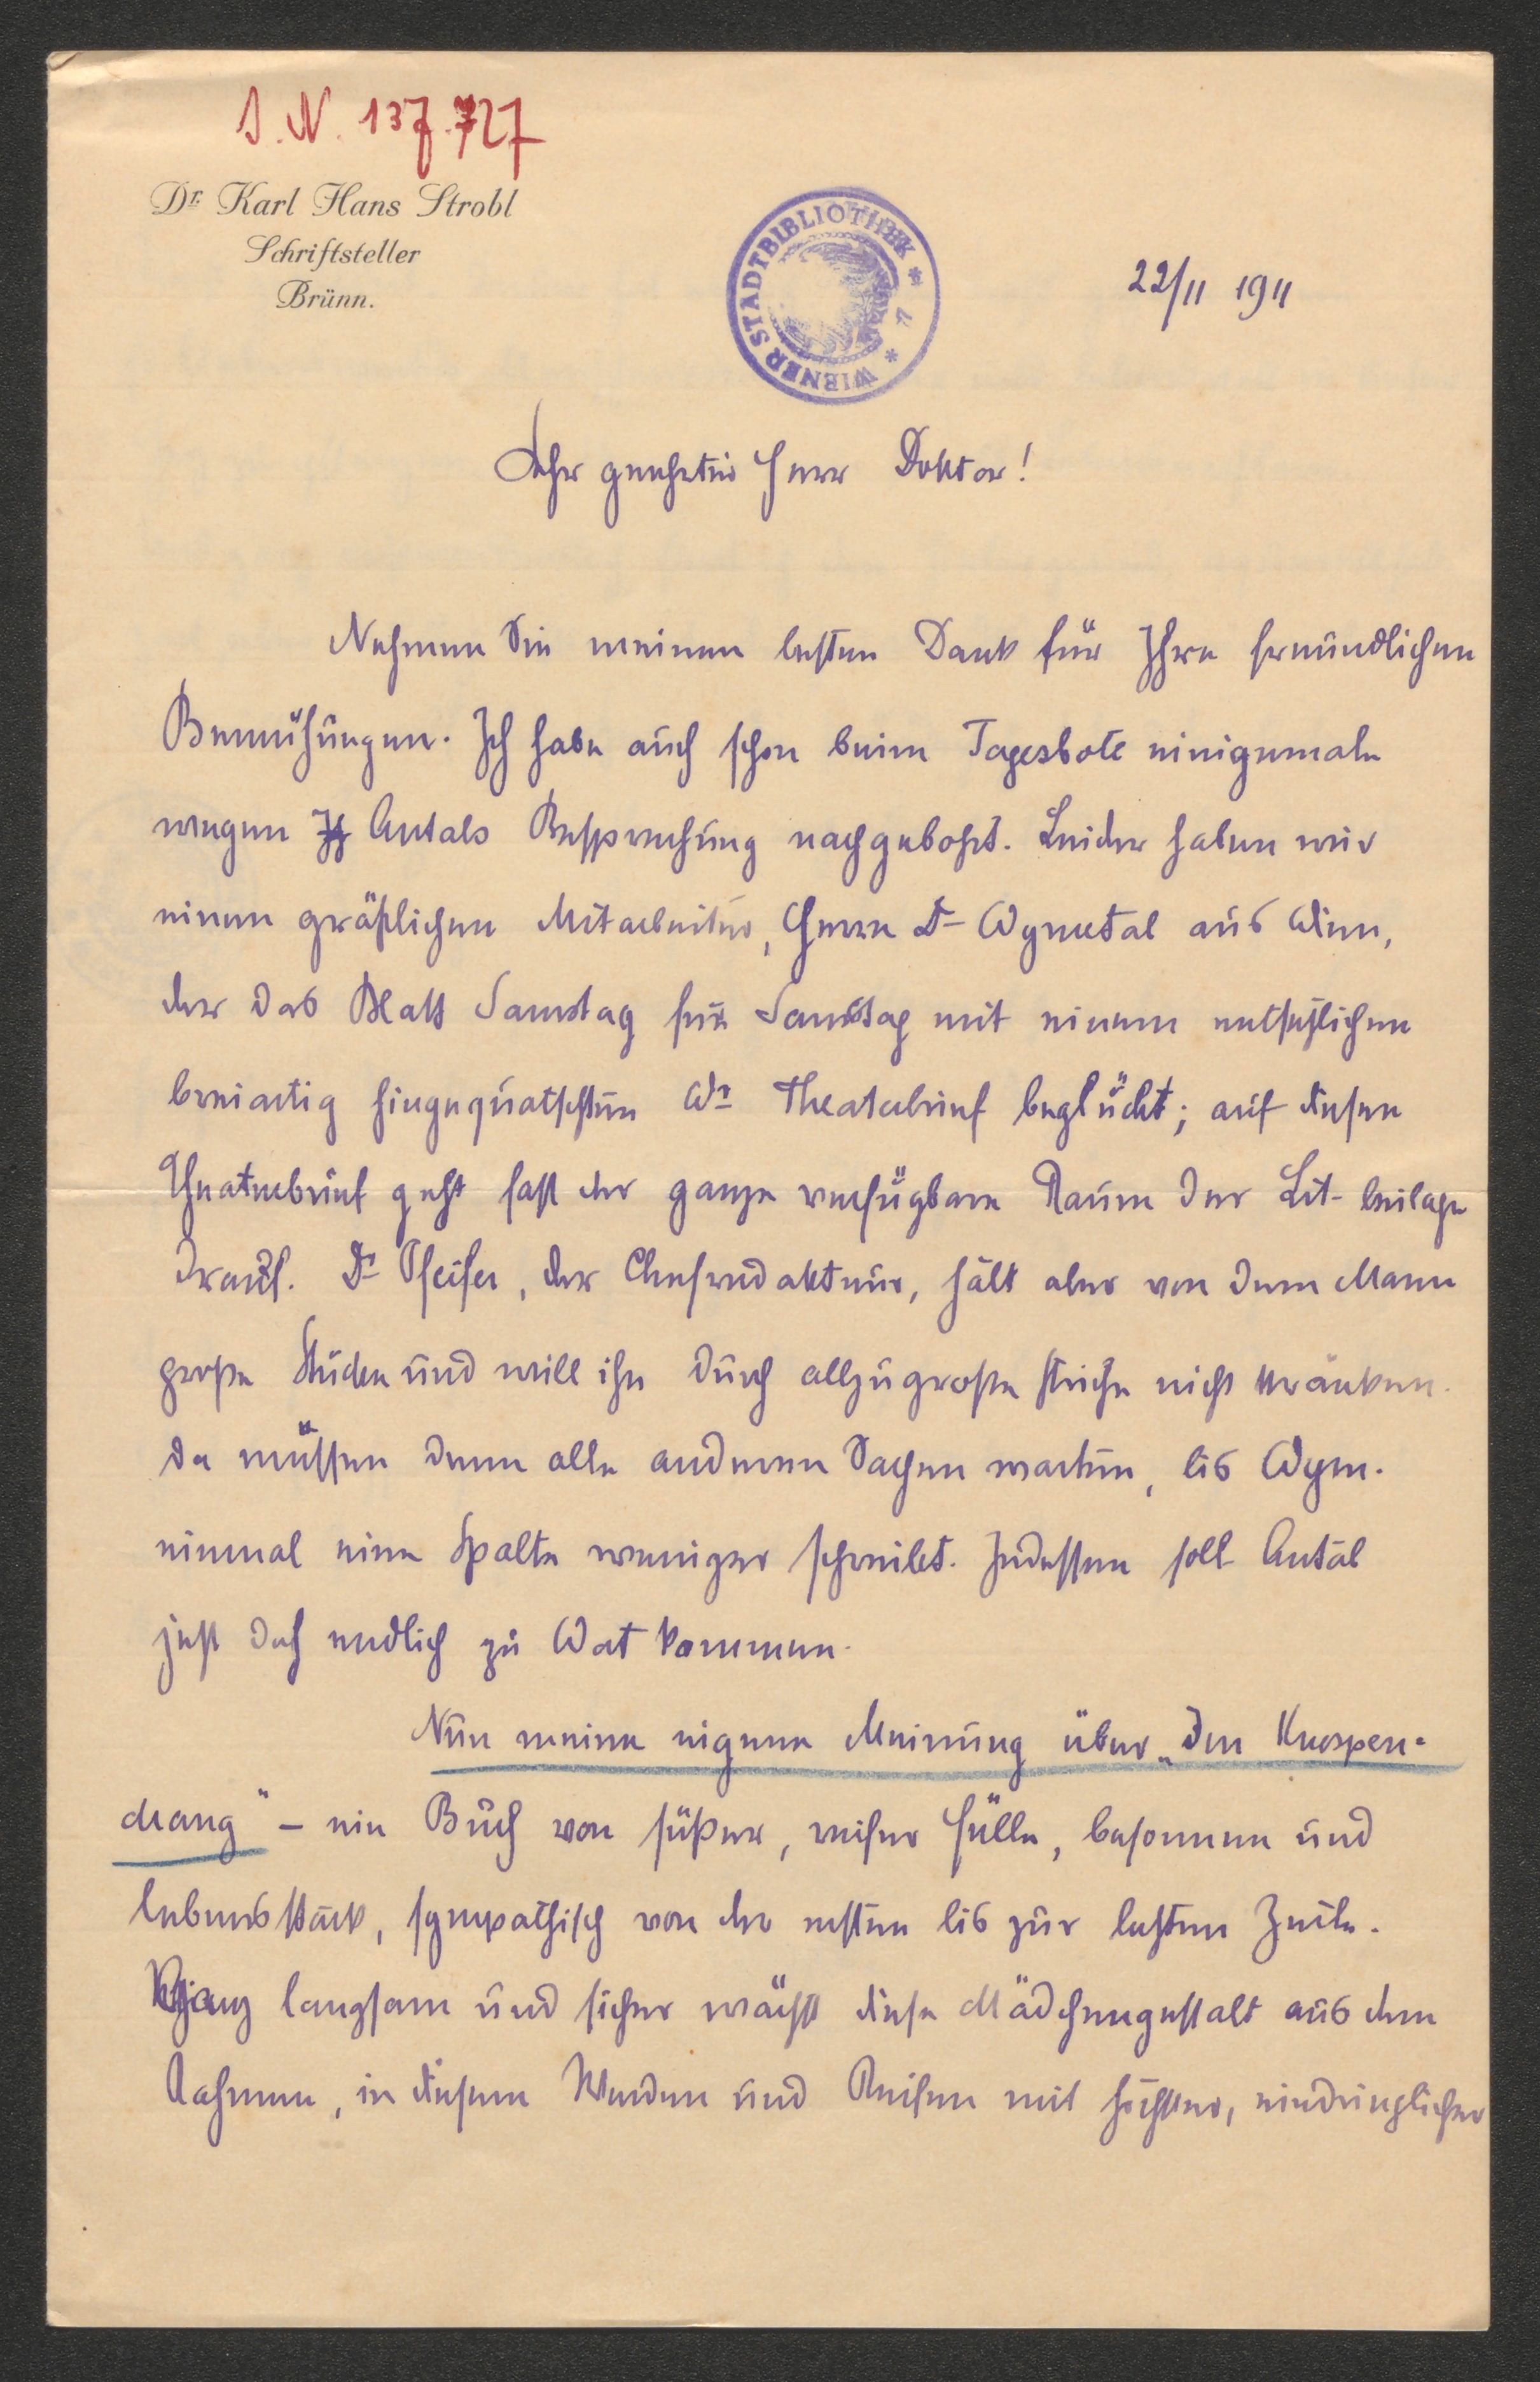 I. N. 137.727
Dr. Karl Hans Strobl
Schriftsteller
Brünn.
WIENER STADTBIBLIOTHEK
22/II 1911
Sehr geehrter Herr Doktor!
Nehmen Sie meinen besten Dank für Ihre freundlichen
Bemühungen. Ich habe auch schon beim Tagesbote einigemale
wegen Antals Besprechung nachgebohrt. Leider haben wir
einen gräßlichen Mitarbeiter, Herrn Dr Wymetal aus Wien,
der das Blatt Samstag für Samstag mit einem entsetzlichen
breiartig hingequatschten Wr Theaterbrief beglückt; auf diesen
Theaterbrief geht fast der ganze verfügbare Raum der Lit-beilage
drauf. Dr Pfeifer, der Chefredakteur, hält aber von dem Mann
große Stücke und will ihn durch allzugroße Striche nicht kränken.
Da müssen denn alle anderen Sachen warten, bis Wym.
einmal eine Spalte weniger schreibt. Indessen soll Antal
jetzt doch endlich zu Wort kommen.
Nun meine eigene Meinung über „den Knospen-
drang" – ein Buch von süßer, reifer Fülle, besonnen und
lebensstark, sympathisch von der ersten bis zur letzten Zeile.
Ganz langsam und sicher wächst diese Mädchengestalt aus dem
Rahmen, in diesem Werden und Reifen mit höchster, eindringlicher